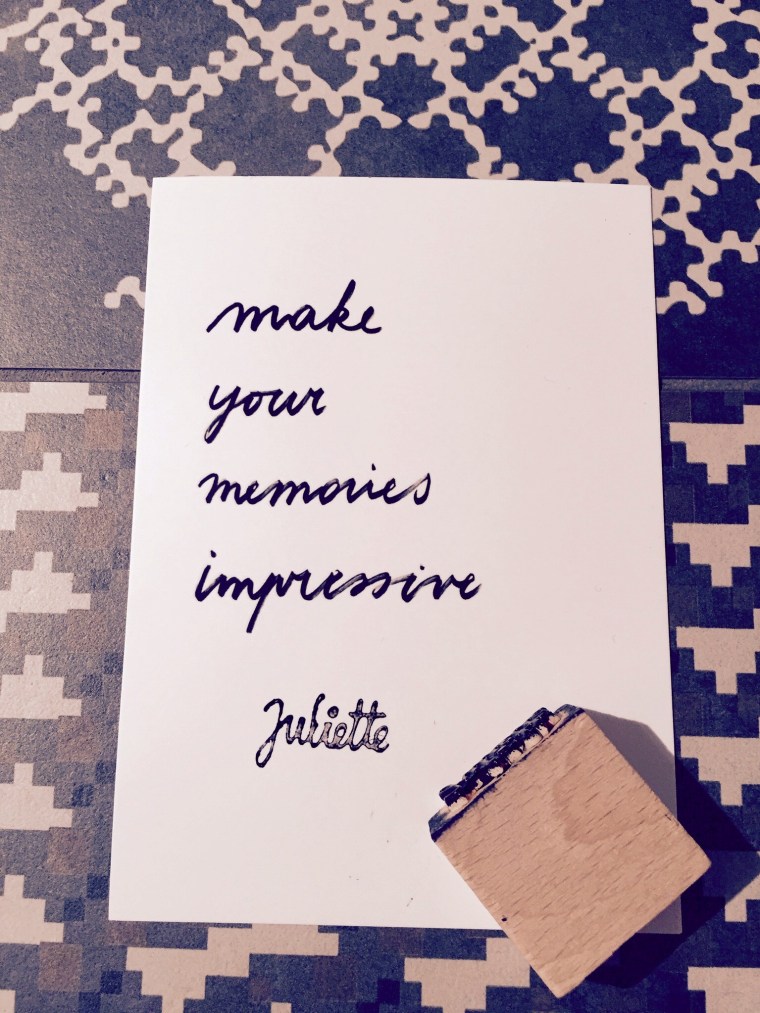 make
your
memories
impressive
Juliette